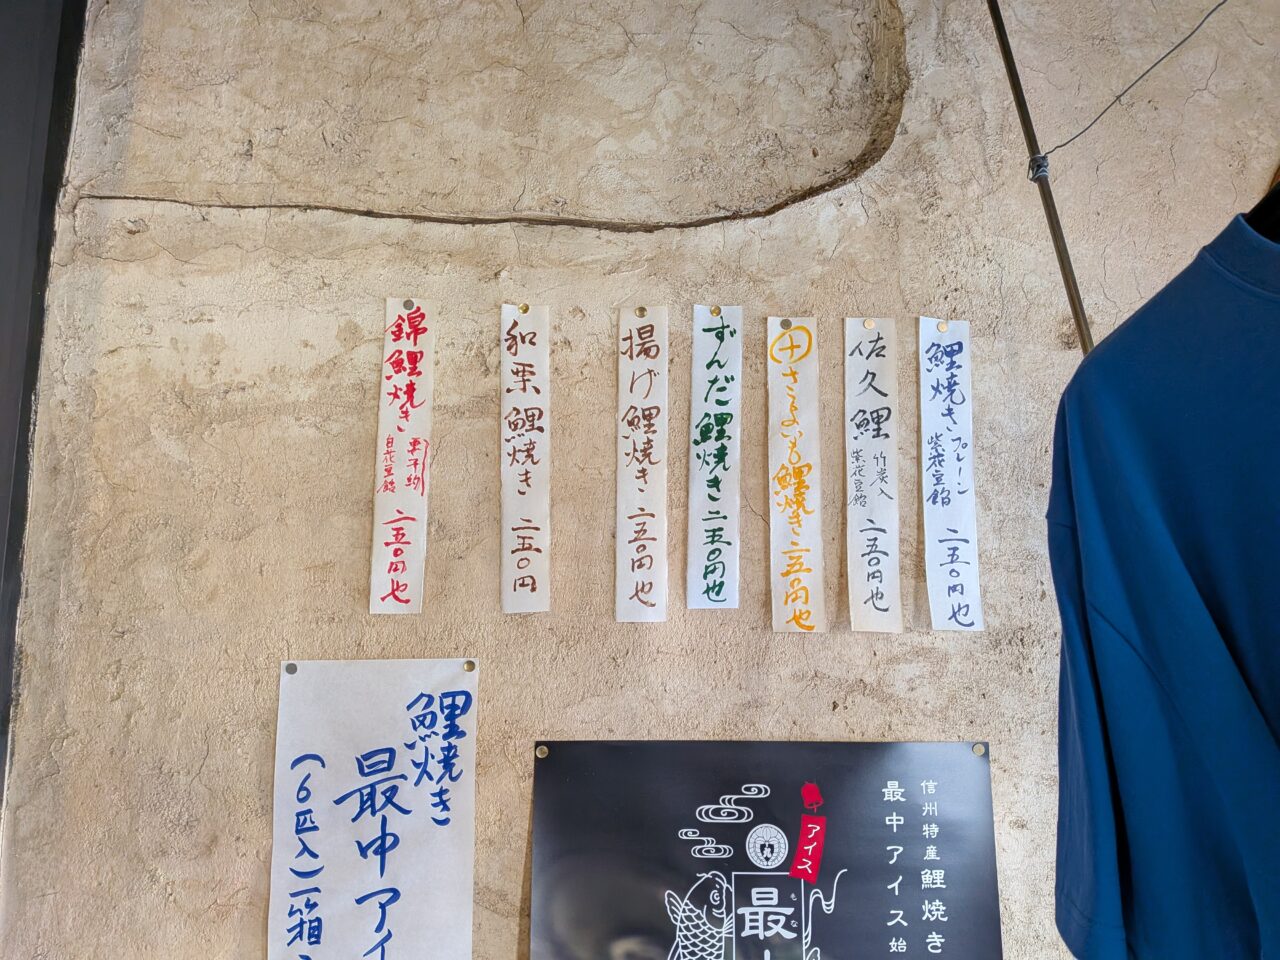 鯉焼き プレーン
紫花豆餡
二五〇円也
佐久鯉 竹炭入
紫花豆餡
二五〇円也
さつまいも鯉焼き 二五〇円也
ずんだ鯉焼き 二五〇円也
揚げ鯉焼き 二五〇円也
和栗鯉焼き 二五〇円
錦鯉焼き
要予約
白花豆餡
二五〇円也
鯉焼き
最中アイ
(6匹入)一箱
信州特産 鯉焼き
最中アイス 始
アイス
最
もな